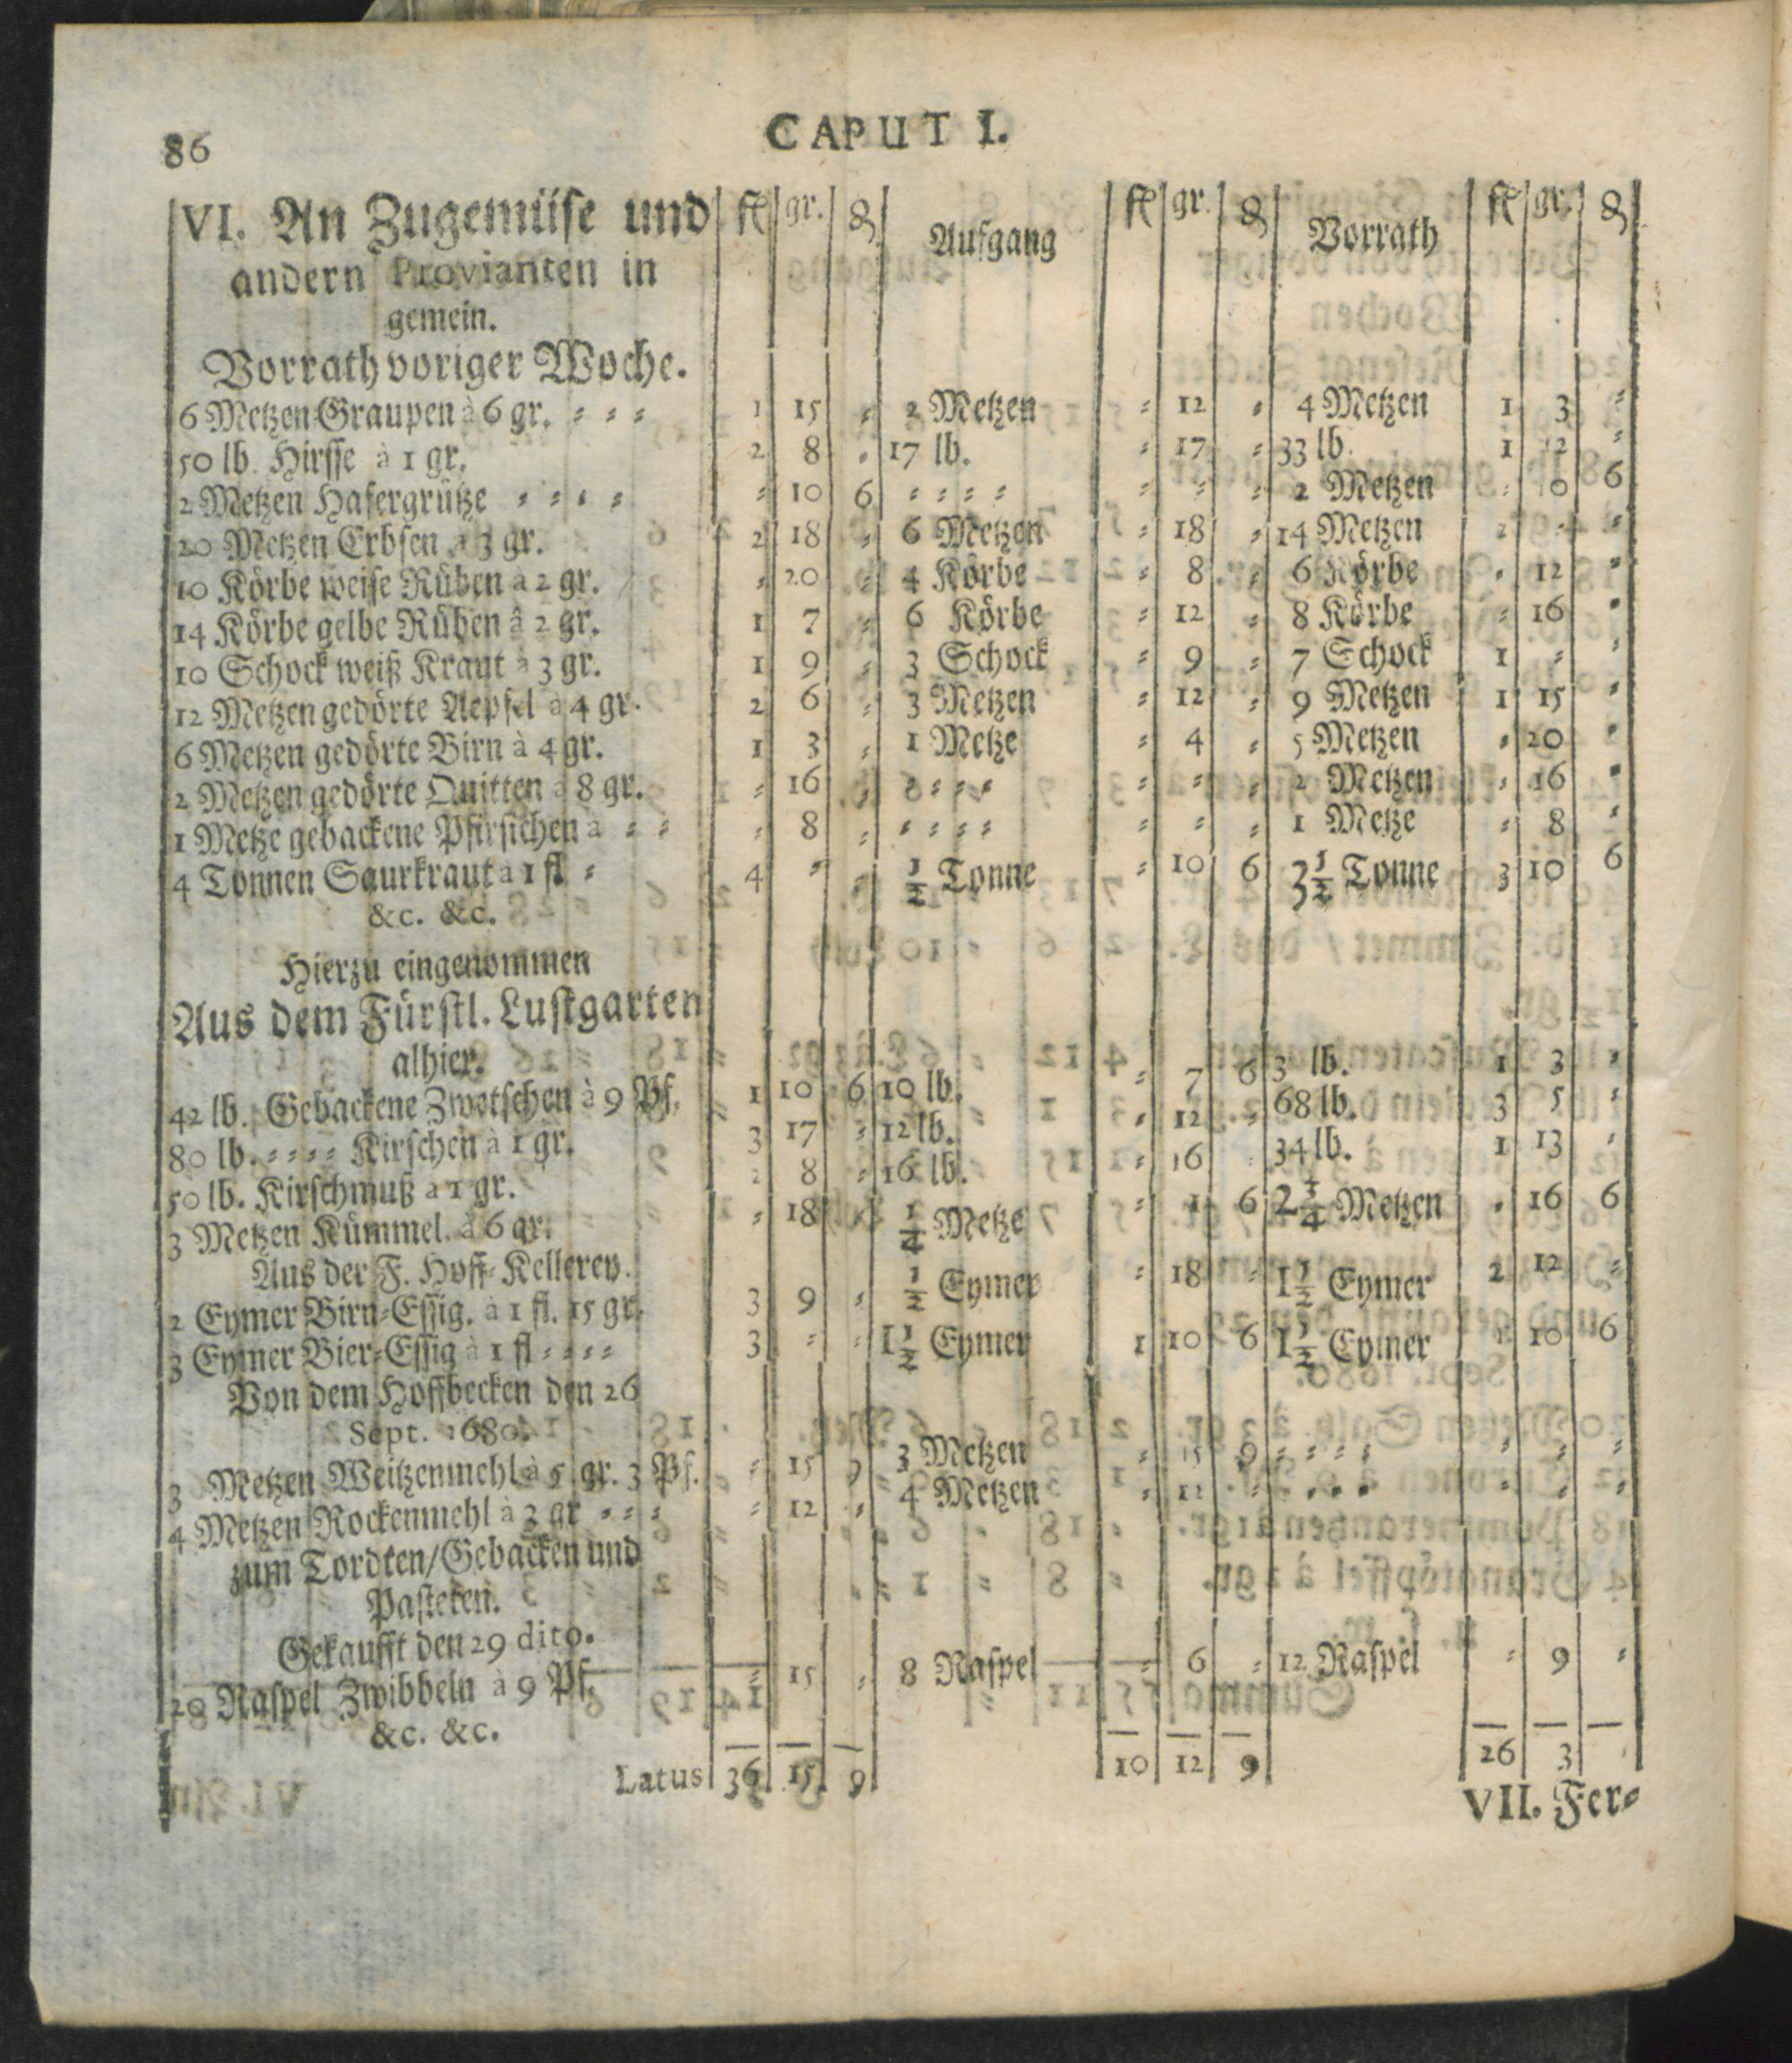 86
CAPUT I.
VI. An Zugemüse und | fl | gr. | ₰ | Aufgang | fl | gr. | ₰ | Vorrath | fl | gr. | ₰
andern Provianten in
gemein.
Vorrath voriger Woche.
6 Metzen Graupen à 6 gr. = = = | 1 | 15 | = | 2 Metzen | = | 12 | = | 4 Metzen | 1 | 3 | =
50 lb. Hirsse à 1 gr. | 2 | 8 | = | 17 lb. | = | 17 | = | 33 lb. | 1 | 12 | =
2 Metzen Hafergrütze = = = = | = | 10 | 6 | = = = = | = | = | = | 2 Metzen | = | 0 | 6
20 Metzen Erbsen à 3 gr. | 2 | 18 | = | 6 Metzen | = | 18 | = | 14 Metzen | 2 | = | =
10 Körbe weise Rüben à 2 gr. | = | 20 | = | 4 Körbe | = | 8 | = | 6 Körbe | = | 12 | =
14 Körbe gelbe Rüben â 2 gr. | 1 | 7 | = | 6 Körbe | = | 12 | = | 8 Körbe | = | 16 | =
10 Schock weiß Kraut à 3 gr. | 1 | 9 | = | 3 Schock | = | 9 | = | 7 Schock | 1 | = | =
12 Metzen gedörte Aepfel à 4 gr. | 2 | 6 | = | 3 Metzen | = | 12 | = | 9 Metzen | 1 | 15 | =
6 Metzen gedörte Birn à 4 gr. | 1 | 3 | = | 1 Metze | = | 4 | = | 5 Metzen | = | 20 | =
2 Metzen gedörte Quitten à 8 gr. | = | 16 | = | = = = = | = | = | = | 2 Metzen | = | 16 | =
1 Metze gebackene Pfirsichen à = = | = | 8 | = | = = = = | = | = | = | 1 Metze | = | 8 | =
4 Tonnen Saurkraut à 1 fl = | 4 | = | = | ½ Tonne | = | 10 | 6 | 3½ Tonne | 3 | 10 | 6
&c. &c.
Hierzu eingenommen
Aus dem Fürstl. Lustgarten
alhier.
42 lb. Gebackene Zwetschen à 9 Pf. | 1 | 10 | 6 | 10 lb. | = | 7 | 6 | 3 lb. | 1 | 3 | =
80 lb. = = = = Kirschen à 1 gr. | 3 | 17 | = | 12 lb. | = | 12 | = | 68 lb. | 3 | 5 | =
50 lb. Kirschmuß à 1 gr. | 2 | 8 | = | 16 lb. | = | 16 | = | 34 lb. | 1 | 13 | =
3 Metzen Kümmel. à 6 gr. | = | 18 | | ¼ Metze | = | 1 | 6 | 2¼ Metzen | = | 16 | 6
Aus der F. Hoff-Kellerey.
2 Eymer Birn-Essig. à 1 fl. 15 gr. | 3 | 9 | = | ½ Eymer | = | 18 | = | 1½ Eymer | 2 | 12 | =
3 Eymer Bier-Essig à 1 fl = = = = | 3 | = | = | 1½ Eymer | 1 | 10 | 6 | 1½ Eymer | 1 | 10 | 6
Von dem Hoffbecken den 26
Sept. 1680.
3 Metzen Weitzenmehl à 5 gr. 3 Pf. | = | 15 | 9 | 3 Metzen | = | 15 | 9 | = = = = | = | = | =
4 Metzen Rockenmehl à 3 gr = = = | = | 12 | = | 4 Metzen | = | 12 | = | = = = | = | = | =
zum Tordten/Gebacken und
Pasteten.
Gekaufft den 29 dito.
20 Raspel Zwibbeln à 9 Pf. | = | 15 | = | 8 Raspel | = | 6 | = | 12 Raspel | = | 9 | =
&c. &c.
Latus | 36 | 15 | 9 | | 10 | 12 | 9 | | 26 | 3 |
VII. Fer-